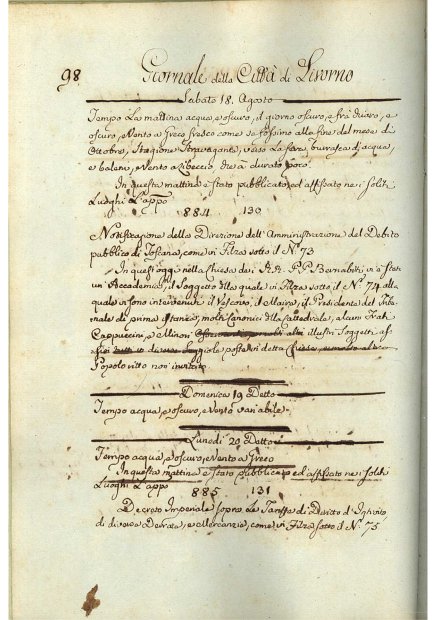 98 Giornale della Città di Livorno
Sabato 18. Agosto
Tempo La mattina acqua, e oscuro, il giorno oscuro, e frà chiaro, e
oscuro, e Vento a Greco fresco come se fossimo alla fine del mese di
Ottobre, Stagione stravagante, verso La sera, burrasca di acqua,
e baleni, e Vento a Libeccio che à durato poco.
In questa mattina è stato pubblicato, ed affissato nei soliti
Luoghi L'app.
884 130
Notificazione della Direzione dell'Amministrazione del Debito
pubblico di Toscana, come in Filza sotto il N.º 73
In quest'oggi nella Chiesa dei R.R. P.P. Barnabiti vi è stata
un'Accademia, il Soggetto della quale in Filza sotto il N.º 74 alla
quale vi sono intervenuti il Vescovo, il Maire, il Presidente del Tribu
nale di prima Istanza, molti Canonici della Cattedrale, alcuni Frati
Cappuccini, e Minori illustri Soggetti as
Popolo vi tto non invitato
Domenica 19 Detto
Tempo acqua, e oscuro, e Vento variabile
Lunedì 20 Detto
Tempo acqua, e oscuro, e Vento a Greco
In questa mattina è stato pubblicato ed affissato nei soliti
Luoghi L'app.
885 131
Decreto Imperiale sopra Le Tariffe di Diritto d'Introito
di diverse Derrate, e Mercanzie, come in Filza sotto il N.º 75